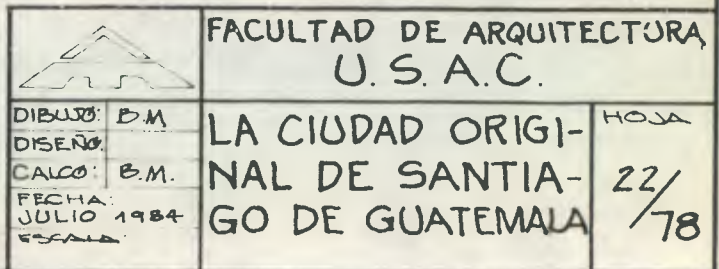 FACULTAD DE ARQUITECTURA
U. S. A. C.
DIBUJO: B.M
DISEÑO:
CALCO: B.M.
FECHA:
JULIO 1984
ESCALA:
LA CIUDAD ORIGI-
NAL DE SANTIA-
GO DE GUATEMALA
HOJA
22/78